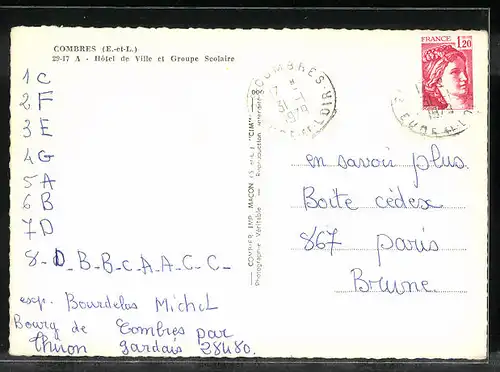 COMBRES (E.-et-L.)
29-17 A - Hôtel de Ville et Groupe Scolaire
1 C
2 F
3 E
4 G
5 A
6 B
7 D
8- D - B - B - C - A - A - C - C -
exp. Bourdelas Michel
Bourg de Combres par
Thiron gardais 28480.
COMBIER IMP. MACON (S.-et-L.) "CIM"
Photographie Véritable - Reproduction interdite
COMBRES
17 H
31 -1
1979
EURE-ET-LOIR
FRANCE
1,20
1979
EURE-ET-L
en savoir plus.
Boite cédex
867 paris
Brune.